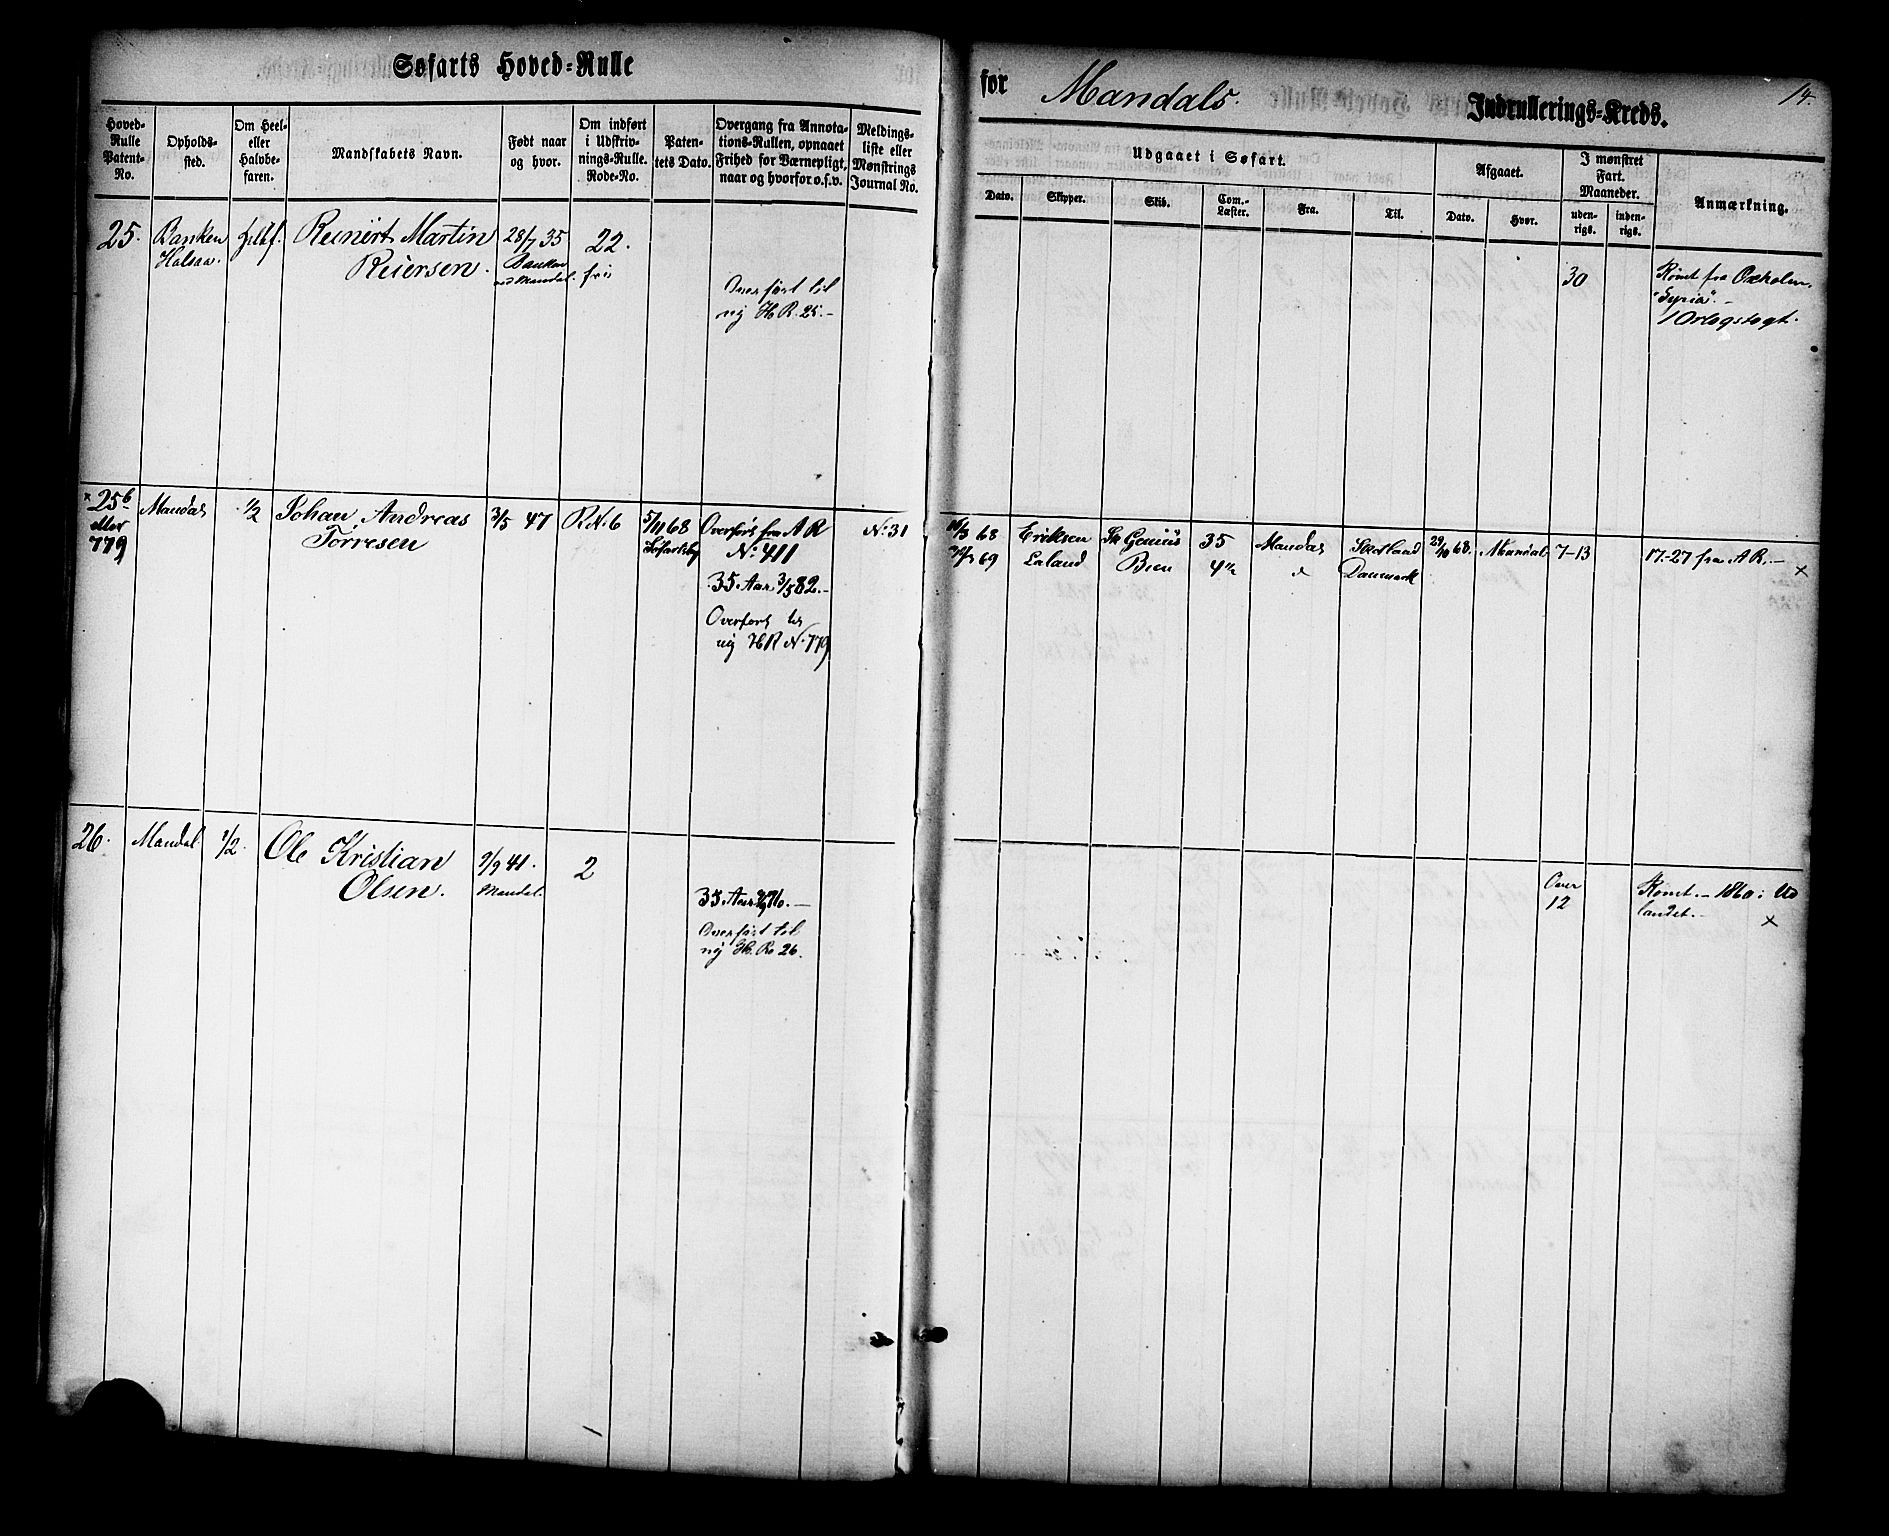 Søfarts Hoved-Rulle
for Mandals. Indrullerings-Kreds.
14.
Hoved-
Rulle
Patent-
No.
Opholds-
sted.
Om Heel-
eller
Halvbe-
faren.
Mandskabets Navn.
Født naar
og hvor.
Om indført
i Udskriv-
nings-Rulle.
Rode-No.
Paten-
tets Dato.
Overgang fra Annota-
tions-Rullen, opnaaet
Frihed for Værnepligt,
naar og hvorfor o.s.v.
Meldings-
liste eller
Mønstrings
Journal No.
Udgaaet i Søfart.
Dato.
Skipper.
Skib.
Com.-
Læster.
Fra.
Til.
Afgaaet.
Dato.
Hvor.
I mønstret
Fart.
Maaneder.
uden-
rigs.
inden-
rigs.
Anmærkning.
25.
Banken
Halsaa.
Reinert Martin
Reiersen.
28/7 35
Banken
ved Mandal.
22.
fri
Overført til
ny H.R. 25.-
30
Rømt fra Oxholm,
"Syria".-
1 Orlogstogt.
× 25 b
eller
779
Mandal
1/2
Johan Andreas
Torresen
3/5 47
R.N. 6
5/11 68
Overført fra A R
No. 411
35 Aar 3/5 82.-
Overført til
ny H R N. 779
No. 31
68
69
Eriksen
Laland
Genius
Bien
35
4 1/2
Mandal
Skotland
Danmark
29/10 68.
Mandal
7-13
17.-27 fra A R.-
×
26.
Mandal
1/2.
Ole Kristian
Olsen.
9/9 41.
Mandal.
2
35 Aar 9/9 76.-
Overført til
ny H. R. 26.
Over
12
Rømt.- 1860 i Ud
landet.-
×